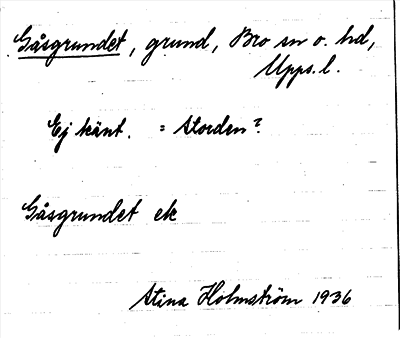 Gåsgrundet, grund, Bro sn o. hd,
Upps. l.
Ej känt. = Storden?
Gåsgrundet ek
Stina Holmström 1936